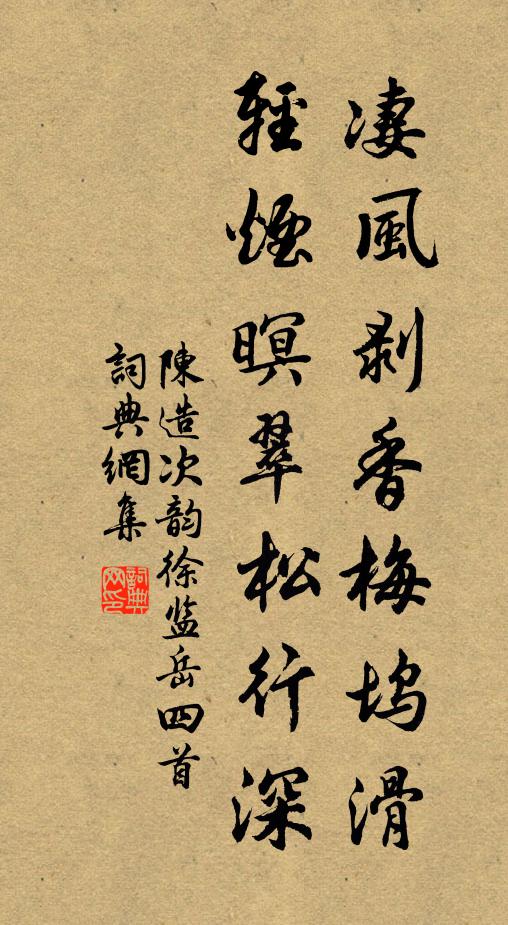 凄風剥香梅塢滑
輕煙暝翠松行深
陳造次韵徐监岳四首
詞典網集
詞典網印